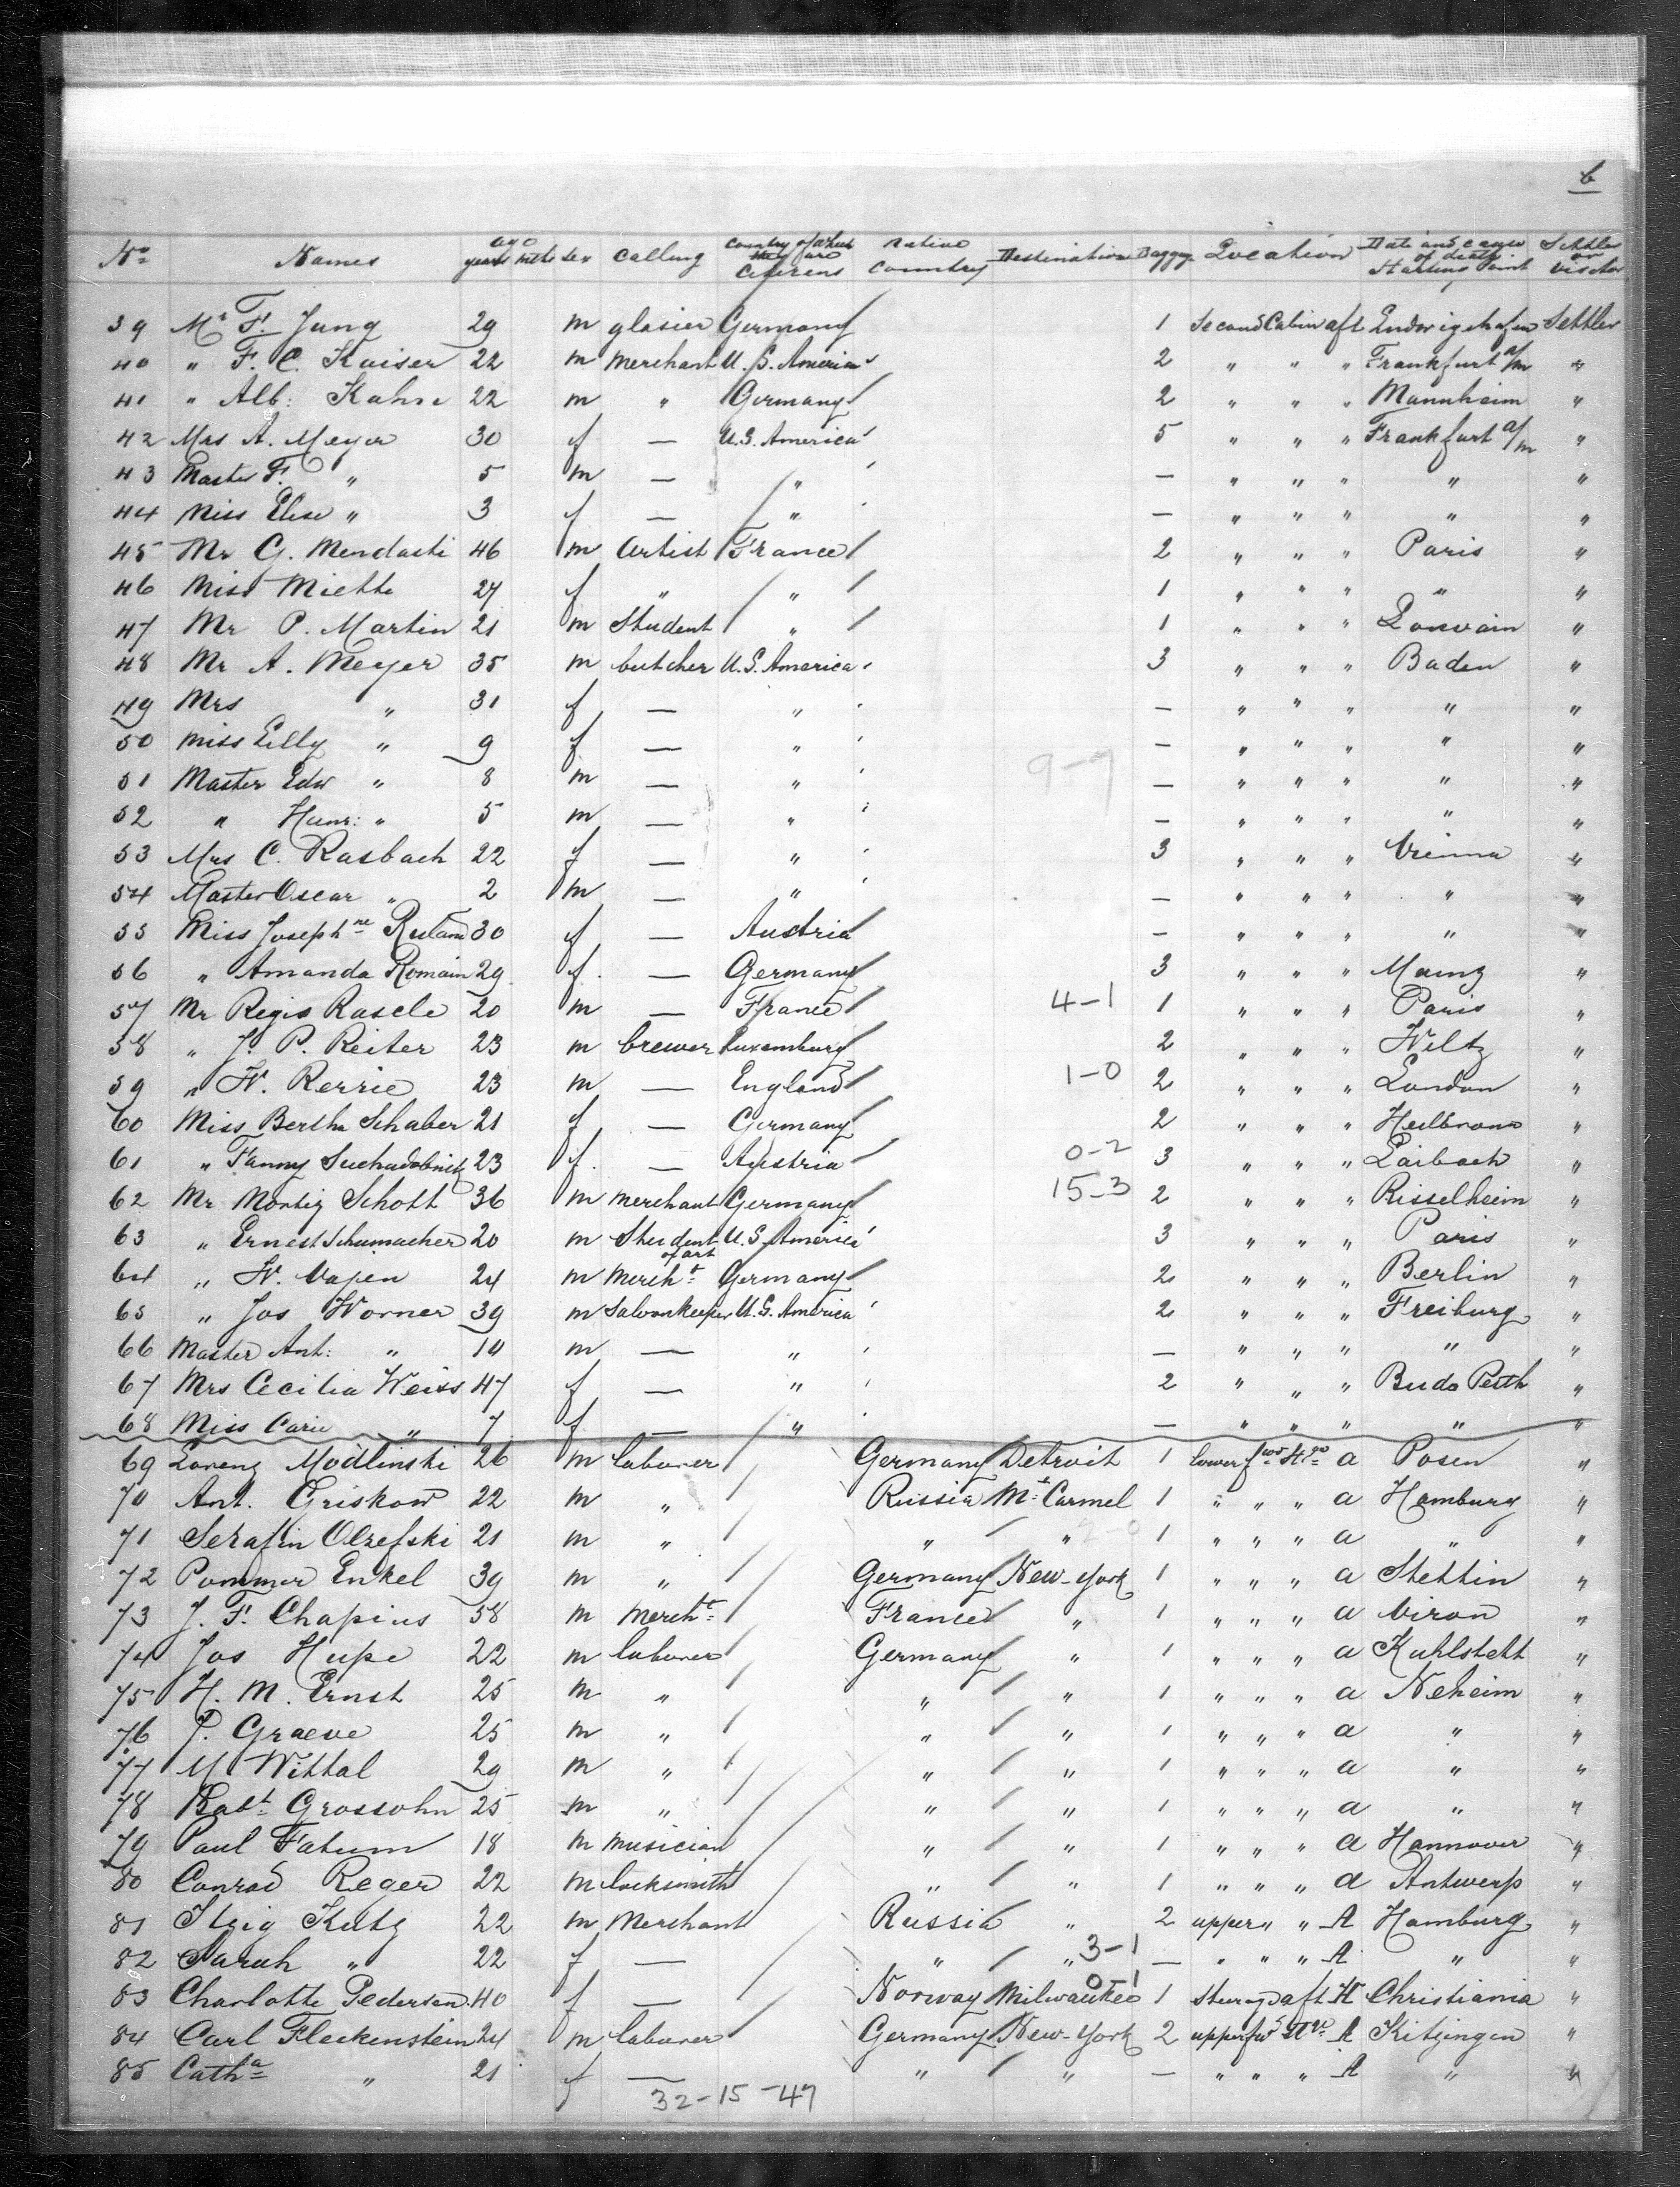 6
No Names age years mths sex calling Country of which they are Citizens native country Destination Baggage Location Date and cause of death Starting Point Settler or visitor
39 Mr F. Jung 29 m glasier Germany 1 Second Cabin aft Ludwigshafen Settler
40 " F. C. Kaiser 22 m Merchant U. S. America 2 " " " Frankfurt a/m "
41 " Alb: Kahn 22 m " Germany 2 " " " Mannheim "
42 Mrs A. Meyer 30 f — U.S. America 5 " " " Frankfurt a/m "
43 Master F. " 5 m — " — " " " " "
44 Miss Elise " 3 f — " — " " " " "
45 Mr G. Mendasti 46 m Artist France 2 " " " Paris "
46 Miss Miette 24 f " " 1 " " " " "
47 Mr P. Martin 21 m Student " 1 " " " Louvain "
48 Mr A. Meyer 35 m butcher U.S. America 3 " " " Baden "
49 Mrs " 31 f — " — " " " " "
50 Miss Lilly " 9 f — " — " " " " "
51 Master Edw " 8 m — " 9-9 — " " " " "
52 " Hunr: " 5 m — " — " " " " "
53 Mrs C. Rasbach 22 f — " 3 " " " Vienna "
54 Master Oscar " 2 m — " — " " " " "
55 Miss Josephne 30 f — Austria — " " " " "
56 " Amanda Romain 29 f. — Germany 3 " " " Mainz "
57 Mr Regis Rascle 20 m — France 4-1 1 " " " Paris "
58 " J. P. Reiter 23 m brewer Luxemburg 2 " " " Wiltz "
59 " W. Rerrie 23 m — England 1-0 2 " " " London "
60 Miss Bertha Schaber 21 f — Germany 2 " " " Heilbronn "
61 " Fanny 23 f. — Austria 0-2 3 " " " Laibach "
62 Mr Moritz Schott 36 m merchant Germany 15-3 2 " " " Risselheim "
63 " Ernest Schumacher 20 m Student of art U.S. America 3 " " " Paris "
64 " W. Vajen 24 m Mercht Germany 2 " " " Berlin "
65 " Jos Worner 39 m Saloonkeeper U.S. America 2 " " " Freiburg "
66 Master Ant: " 10 m — " — " " " " "
67 Mrs Cecilia Weiss 47 f — " 2 " " " Buda Pesth "
68 Miss Carie " 7 f — " — " " " " "
69 Lorenz Modlinski 26 m laborer Germany Detroit 1 lower fwd Stge a Posen "
70 Ant. Griskow 22 m " Russia Mt Carmel 1 " " " a Hamburg "
71 Serafin Olrefski 21 m " " " 1 " " " a " "
72 Pommer Enkel 39 m " Germany New-York 1 " " " a Stettin "
73 J. F. Chapius 58 m Mercht France " 1 " " " a Viron "
74 Jos Hupe 22 m laborer Germany " 1 " " " a Kuhlstett "
75 H. M. Ernst 25 m " " " 1 " " " a Neheim "
76 J. Graeve 25 m " " " 1 " " " a " "
77 M Wittal 29 m " " " 1 " " " a " "
78 Babt Grossohn 25 m " " " 1 " " " a " "
79 Paul Fatum 18 m musician " " 1 " " " a Hannover "
80 Conrad Reger 22 m locksmith " " 1 " " " a Antwerp "
81 Itzig Kutz 22 m Merchant Russia " 2 upper " " A Hamburg "
82 Sarah " 22 f — " " 3-1 — " " " A " "
83 Charlotte Pedersen 40 f — Norway Milwaukee 0 1 1 Sturag aft H Christiania "
84 Carl Fleckenstein 24 m laborer Germany New-York 2 upper fwd Stge A Kitzingen "
85 Catha " 21 f — " " — " " " A " "
32-15-47